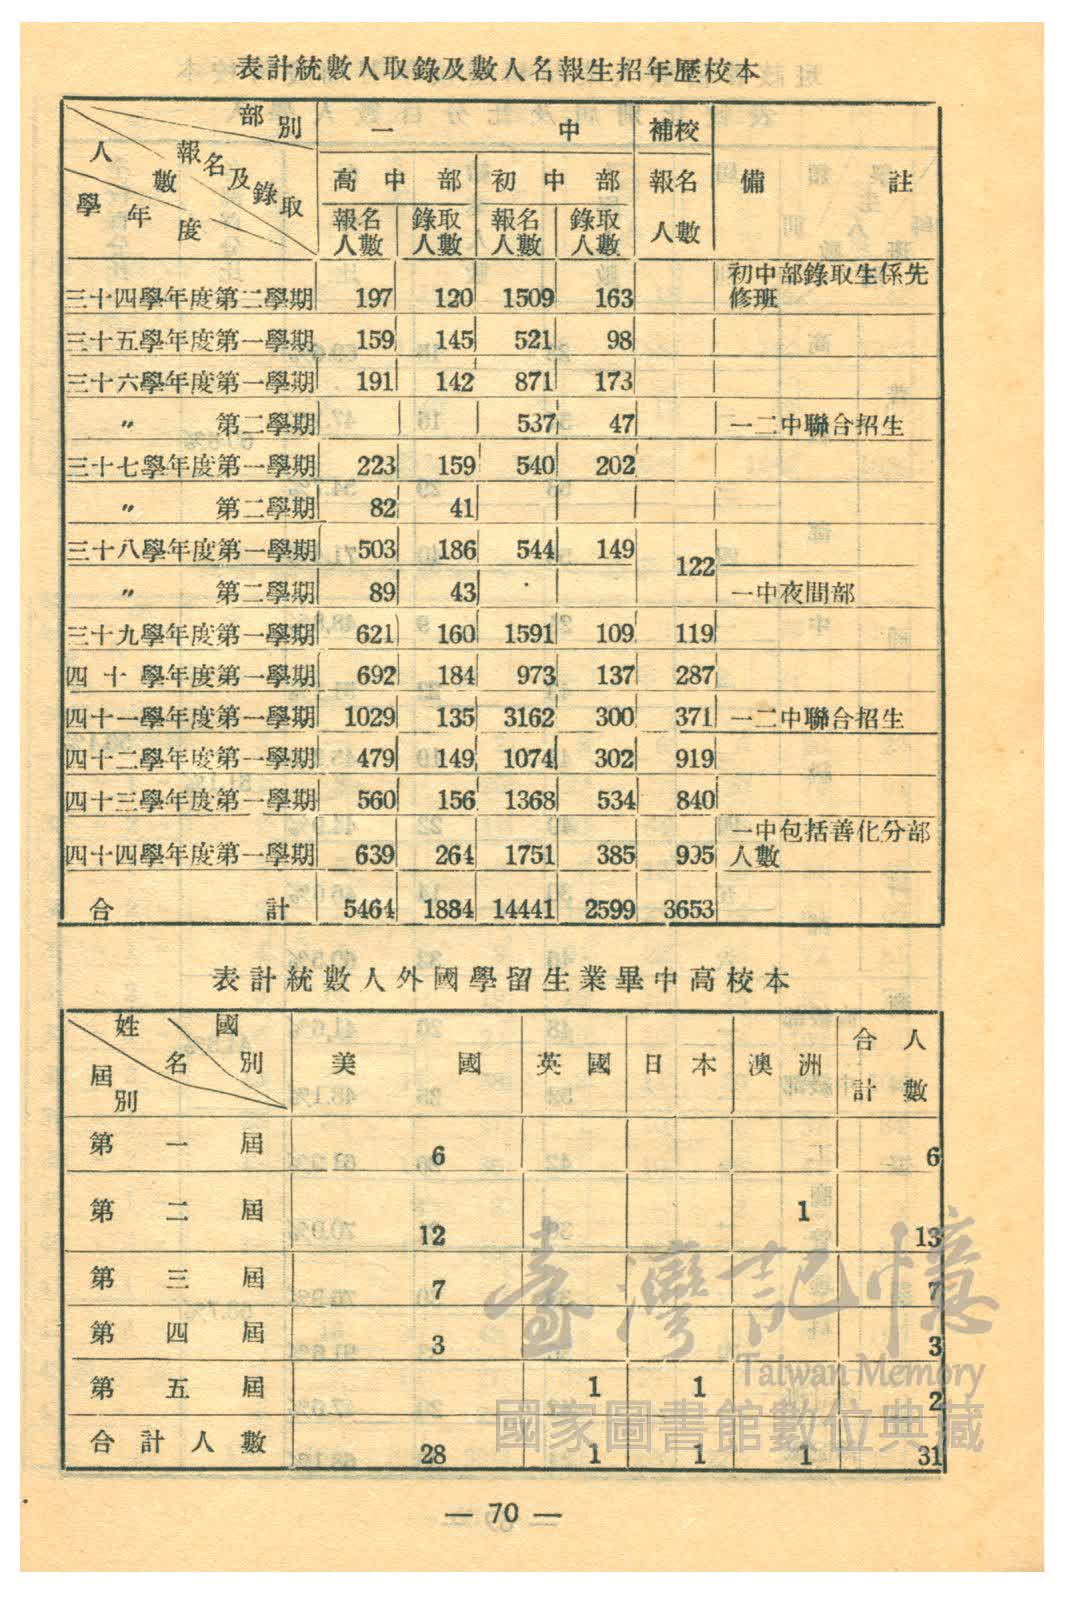 表計統數人取錄及數人名報生招年歷校本
部別 一中 補校 備註
人數 報名及錄取 學年度
高中部 初中部 報名人數
報名人數 錄取人數 報名人數 錄取人數
三十四學年度第二學期 197 120 1509 163 初中部錄取生係先修班
三十五學年度第一學期 159 145 521 98
三十六學年度第一學期 191 142 871 173
〃 第二學期 537 47 一二中聯合招生
三十七學年度第一學期 223 159 540 202
〃 第二學期 82 41
三十八學年度第一學期 503 186 544 149 122
〃 第二學期 89 43 一中夜間部
三十九學年度第一學期 621 160 1591 109 119
四十學年度第一學期 692 184 973 137 287
四十一學年度第一學期 1029 135 3162 300 371 一二中聯合招生
四十二學年度第一學期 479 149 1074 302 919
四十三學年度第一學期 560 156 1368 534 840
四十四學年度第一學期 639 264 1751 385 995 一中包括善化分部人數
合計 5464 1884 14441 2599 3653
表計統數人外國學留生業畢中高校本
姓名 國別 屆別 美國 英國 日本 澳洲 合計人數
第一屆 6 6
第二屆 12 1 13
第三屆 7 7
第四屆 3 3
第五屆 1 1 2
合計人數 28 1 1 1 31
臺灣記憶
Taiwan Memory
國家圖書館數位典藏
— 70 —